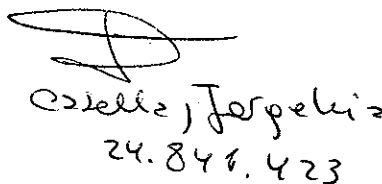 Casella, Jorgelina
24.841.423